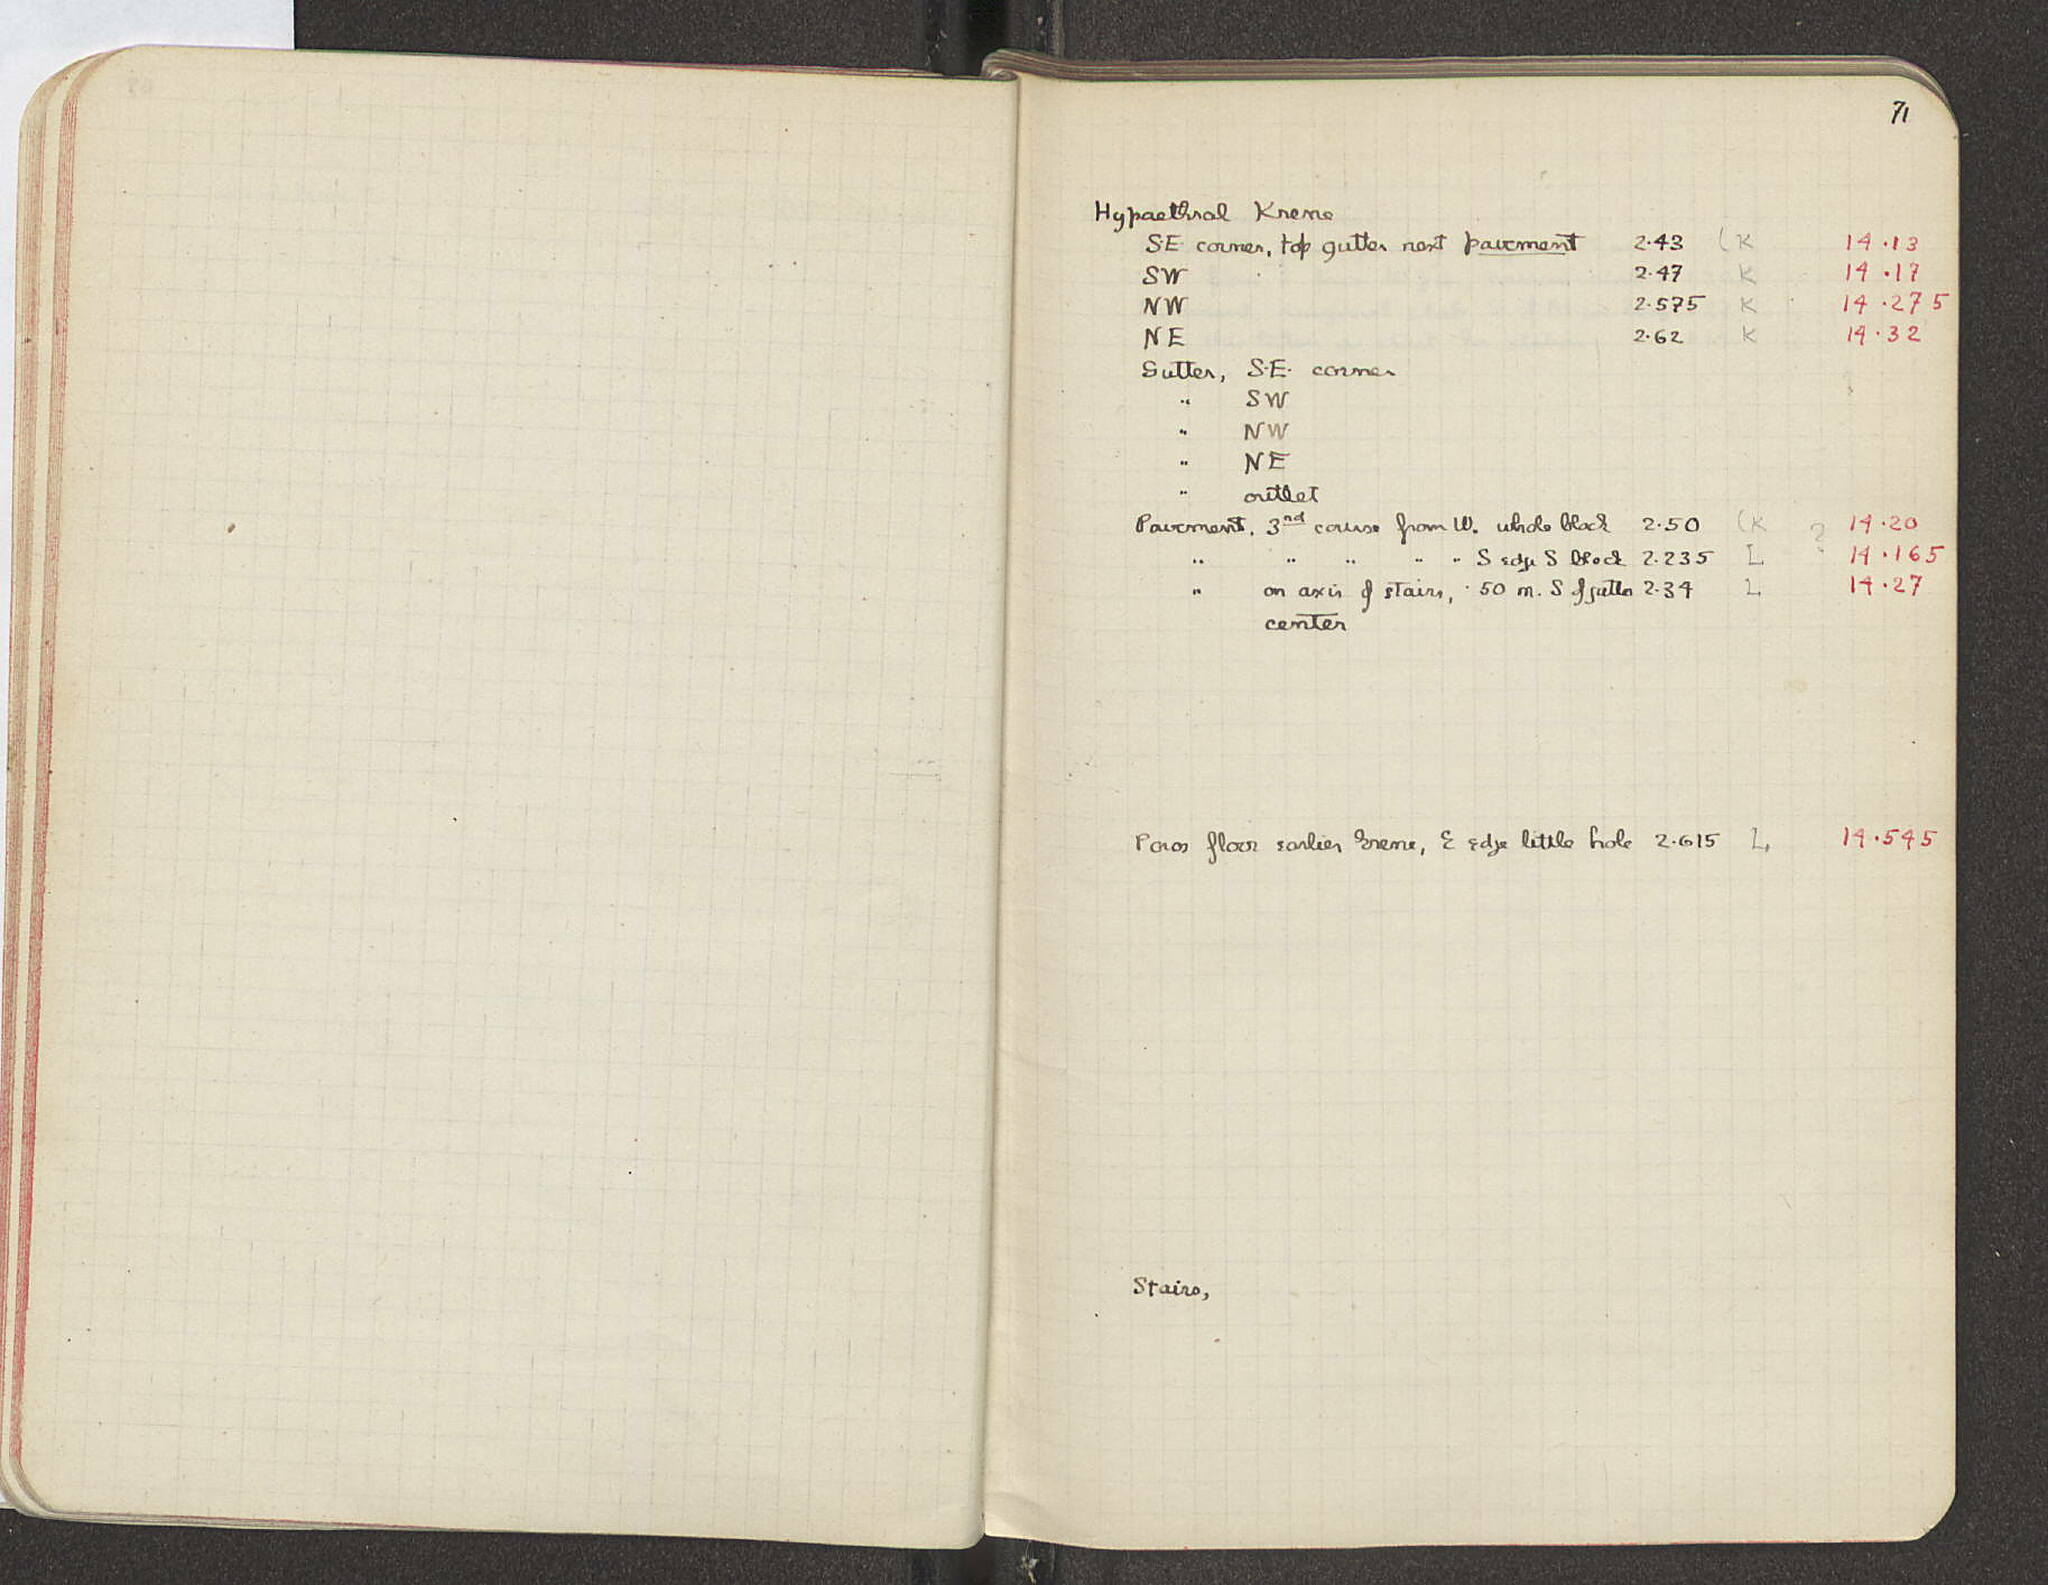 71
Hypaethral Krene
S.E. corner, top gutter next pavement 2.43 (K 14.13
SW 2.47 K 14.17
NW 2.575 K 14.275
NE 2.62 K 14.32
Gutter, S.E. corner
" SW
" NW
" NE
" outlet
Pavement, 3nd course from W. whole block 2.50 (K ? 14.20
" " " " " S edge S block 2.235 L 14.165
" on axis of stairs, .50 m. S of gutter 2.34 L 14.27
center
Poros floor earlier Krene, E edge little hole 2.615 L, 14.545
Stairs,